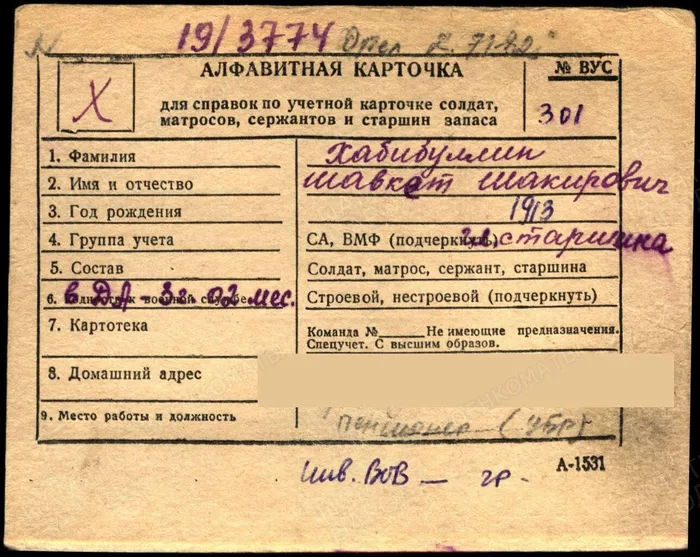 19/3774
АЛФАВИТНАЯ КАРТОЧКА
№ ВУС
X
для справок по учетной карточке солдат,
матросов, сержантов и старшин запаса
301
1. Фамилия Хабибуллин
2. Имя и отчество Шавкат Шакирович
3. Год рождения 1913
4. Группа учета СА, ВМФ (подчеркнуть) старшина
5. Состав Солдат, матрос, сержант, старшина
6. в ДА - 3г. 02 мес. Строевой, нестроевой (подчеркнуть)
7. Картотека Команда №______ Не имеющие предназначения.
Спецучет. С высшим образов.
8. Домашний адрес
9. Место работы и должность
пенсионер
инв. ВОВ — гр.
А-1531